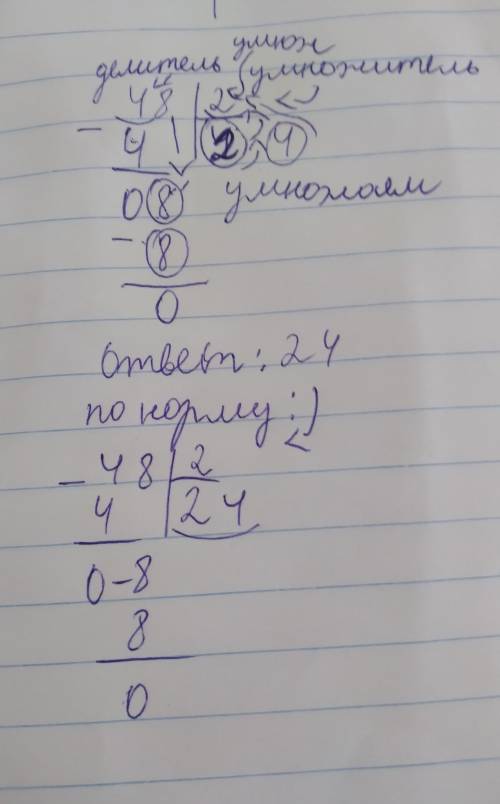 умнож
делитель умножитель
48 2
- 4 2 4
08 умножаем
- 8
0
ответ: 24
по норму :)
- 48 2
4 24
0-8
8
0